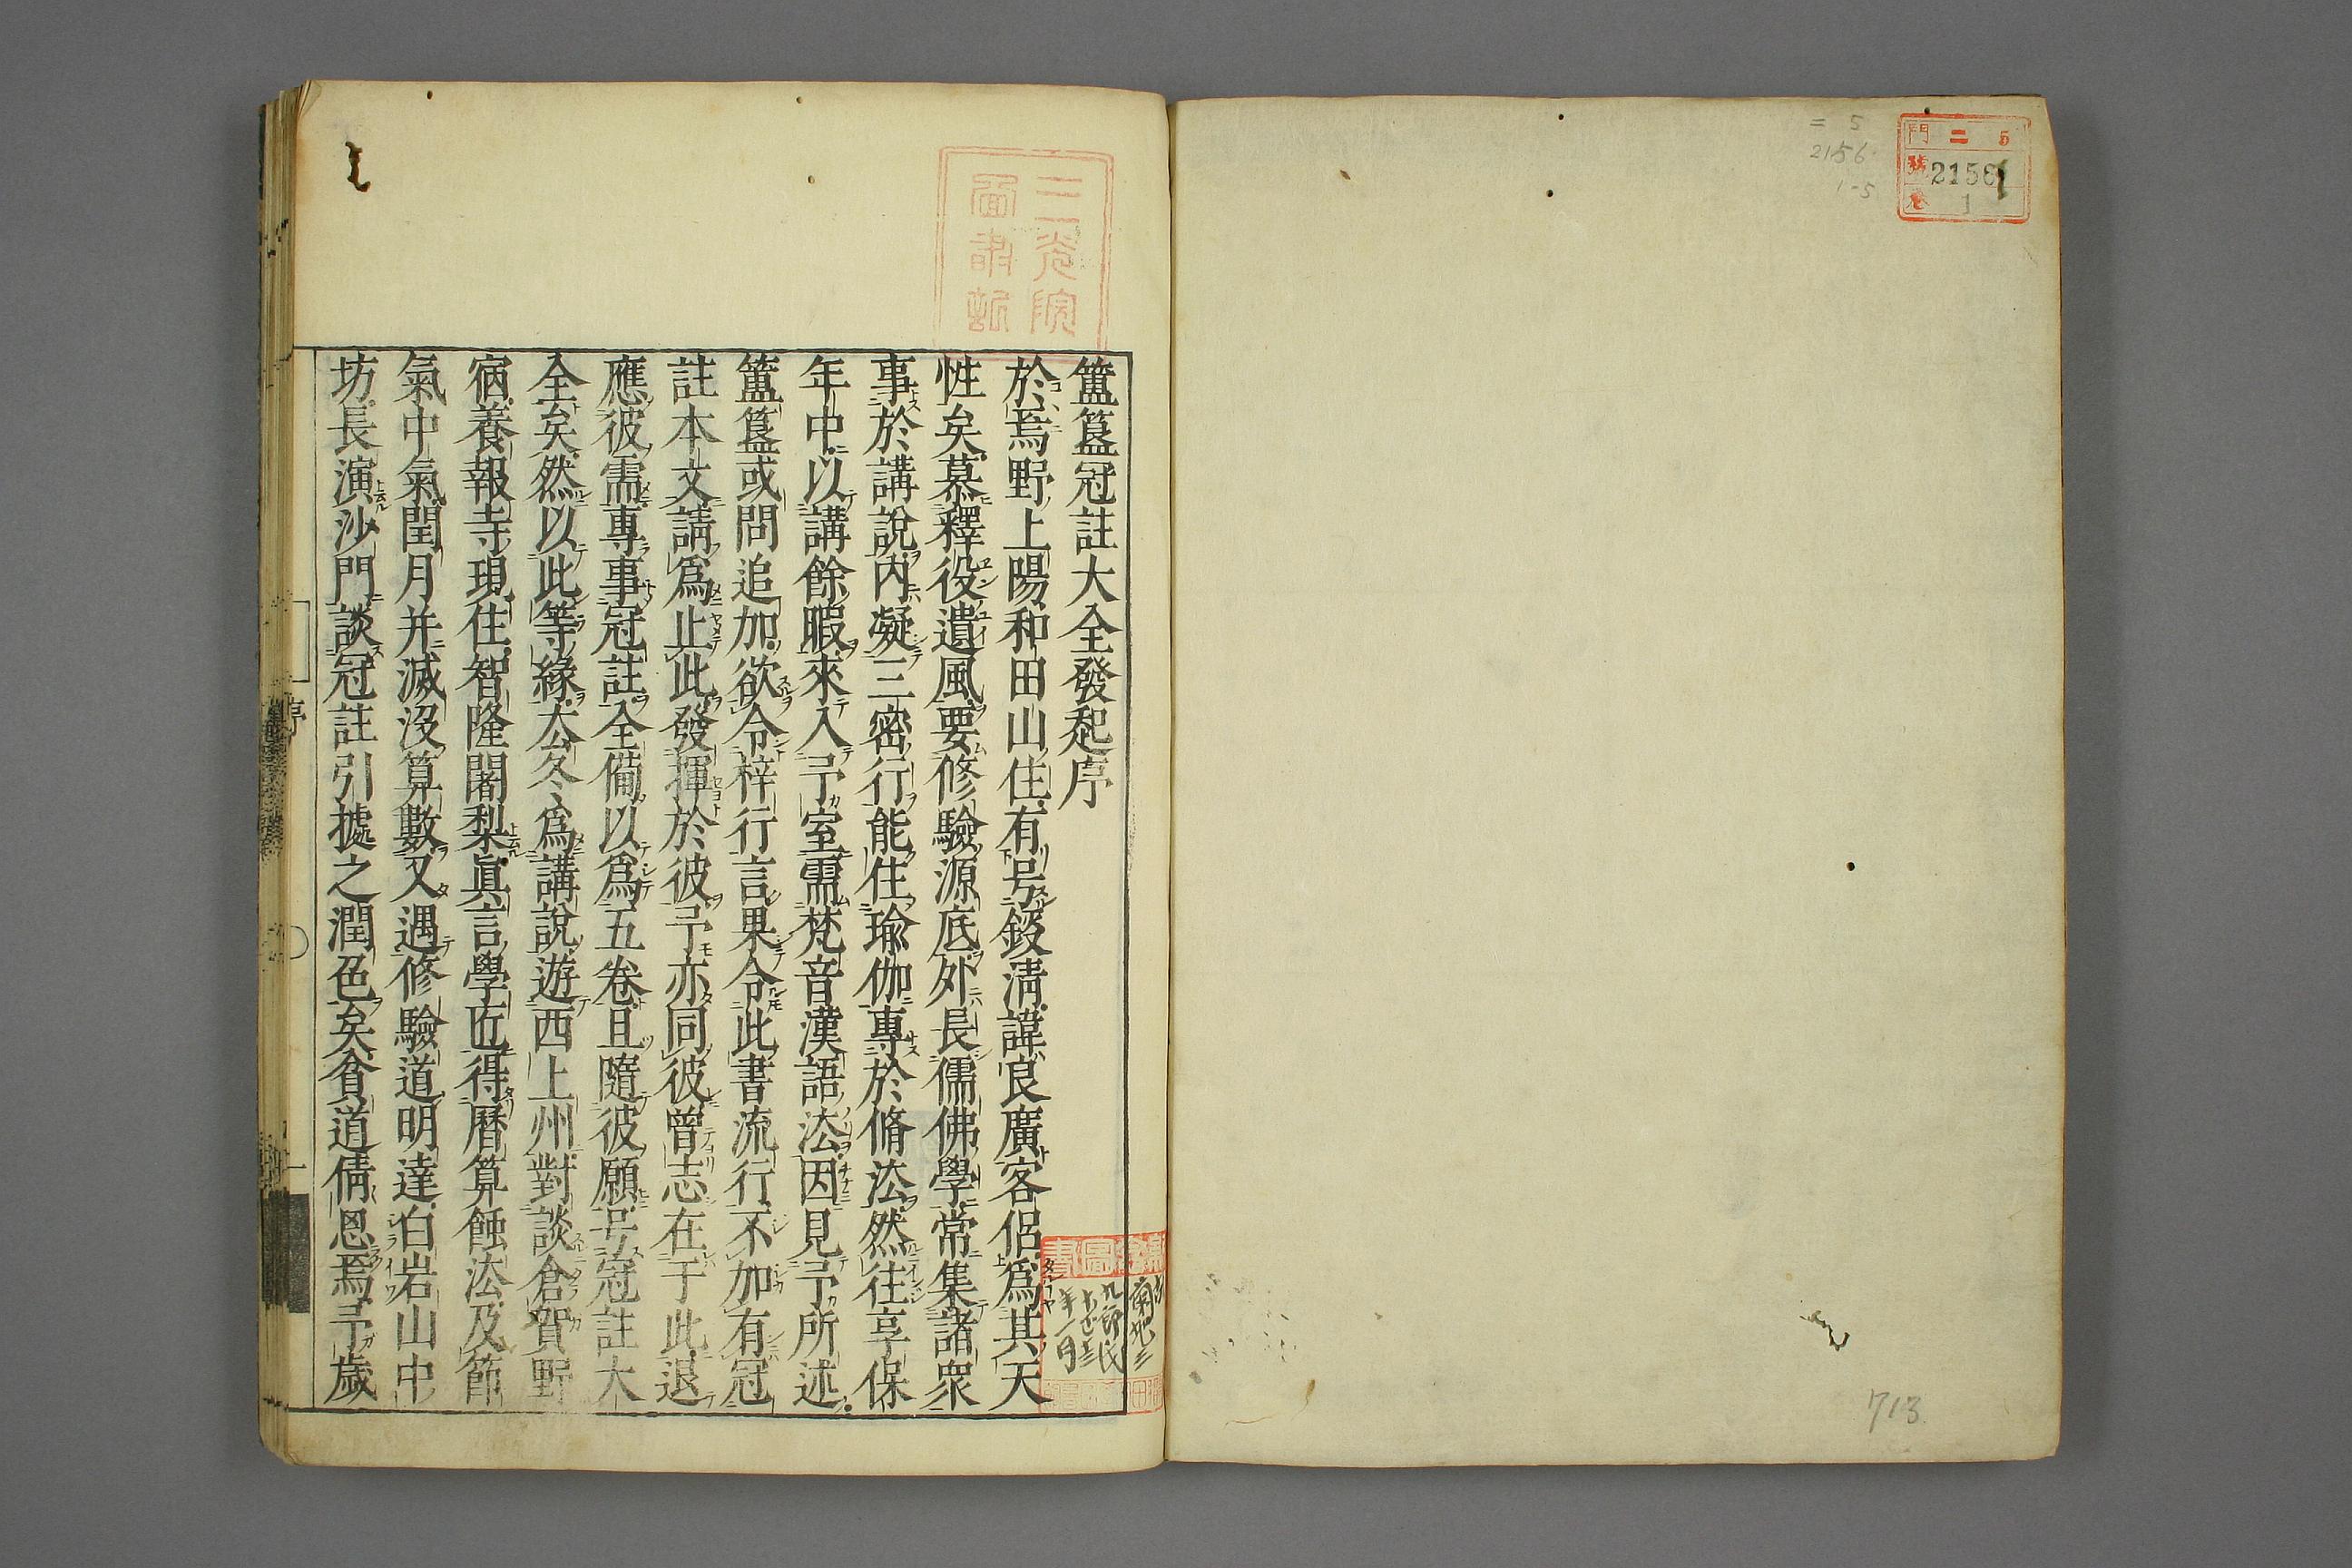 門 二 5
號 2156
卷 1
= 5
2156
1-5
713
三光院
簠簋冠註大全發起序
於焉野上陽和田山住有号鍐淸諱良廣客侶爲其天
性矣慕釋役遺風要修驗源底外長儒佛學常集諸衆
事於講說內凝三密行能住瑜伽專於脩法然往享保
年中以講餘暇來入予室需梵音漢語法因見予所述
簠簋或問追加欲令梓行言果令此書流行不加有冠
註本文請爲止此發揮於彼予亦同彼曾志在于此退
應彼需專事冠註全備以爲五卷且隨彼願号冠註大
全矣然以此等緣去冬爲講說遊西上州對談倉賀野
宿養報寺現住智隆闍梨眞言學匠得曆算蝕法及節
氣中氣閏月并滅沒算數又遇修驗道明達白岩山中
坊長演沙門談冠註引據之潤色矣貧道倩思焉予歲
序
一